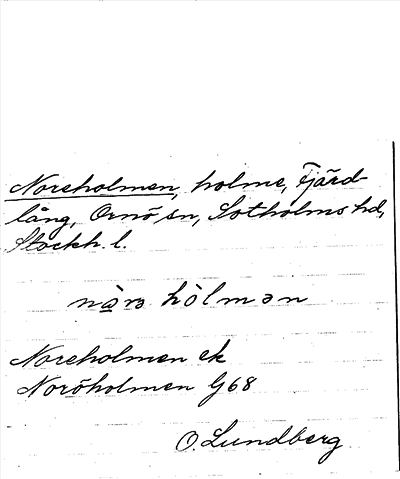 Noreholmen, holme, Fjärd-
lång, Ornö sn, Sotholms hd,
Stockh. l.
nårə hòlmən
Noreholmen ek
Noröholmen G68
O. Lundberg